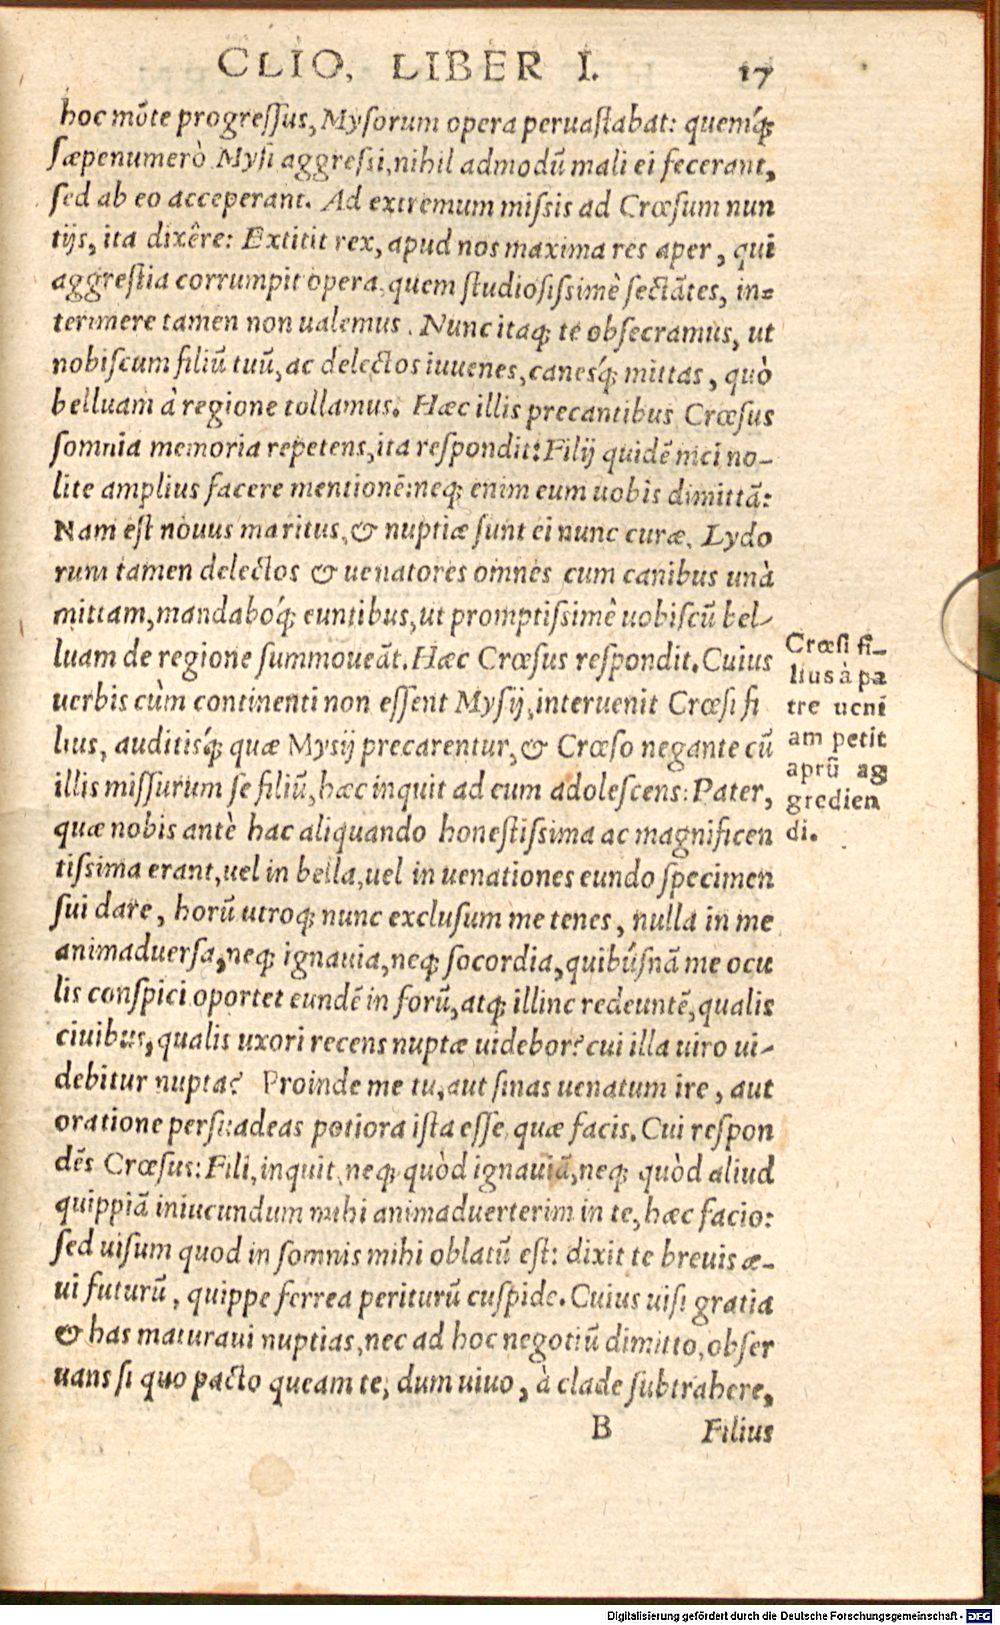 CLIO, LIBER I. 17
hoc mõte progreſſus, Myſorum opera peruaſtabat: quemq́ꝫ
ſæpenumerò Myſi aggreſsi, nihil admodũ mali ei fecerant,
ſed ab eo acceperant. Ad extremum miſsis ad Crœſum nun
tijs, ita dixêre: Extitit rex, apud nos maxima res aper, qui
aggreſtia corrumpit opera, quem ſtudioſiſsimè ſectãtes, in=
terimere tamen non ualemus. Nunc itaqꝫ te obſecramus, ut
nobiſcum filiũ tuũ, ac delectos iuuenes, canesq́ꝫ mittas, quò
belluam à regione tollamus. Hæc illis precantibus Crœſus
ſomnia memoria repetens, ita reſpondit: Filij quidẽ mei no-
lite amplius facere mentionẽ: neqꝫ enim eum uobis dimittã:
Nam eſt nouus maritus, & nuptiæ ſunt ei nunc curæ. Lydo
rum tamen delectos & uenatores omnes cum canibus unà
mittam, mandaboq́ꝫ euntibus, ut promptiſsimè uobiſcũ bel-
luam de regione ſummoueãt. Hæc Crœſus reſpondit. Cuius
uerbis cùm continenti non eſſent Myſij, interuenit Crœſi fi
lius, auditisq́ꝫ quæ Mysij precarentur, & Crœſo negante cũ
illis miſſurum ſe filiũ, hæc inquit ad eum adoleſcens: Pater,
quæ nobis antè hac aliquando honeſtiſsima ac magnificen
tiſsima erant, uel in bella, uel in uenationes eundo ſpecimen
ſui dare, horũ utroqꝫ nunc excluſum me tenes, nulla in me
animaduerſa, neqꝫ ignauia, neqꝫ ſocordia, quibúſnã me ocu
lis conſpici oportet eundẽ in forũ, atqꝫ illinc redeuntẽ, qualis
ciuibus, qualis uxori recens nuptæ uidebor? cui illa uiro ui-
debitur nupta? Proinde me tu, aut ſinas uenatum ire, aut
oratione perſuadeas potiora iſta eſſe, quæ facis. Cui reſpon
dẽs Crœſus: Fili, inquit, neqꝫ quòd ignauiã, neqꝫ quòd aliud
quippiã iniucundum mihi animaduerterim in te, hæc facio:
ſed uiſum quod in ſomnis mihi oblatũ eſt: dixit te breuis æ-
ui futurũ, quippe ferrea periturũ cuſpide. Cuius uiſi gratia
& has maturaui nuptias, nec ad hoc negotiũ dimitto, obſer
uans ſi quo pacto queam te, dum uiuo, à clade ſubtrahere,
B Filius
Crœſi fi-
lius à pa
tre ueni
am petit
aprũ ag
gredien
di.
Digitalisierung gefördert durch die Deutsche Forschungsgemeinschaft - DFG